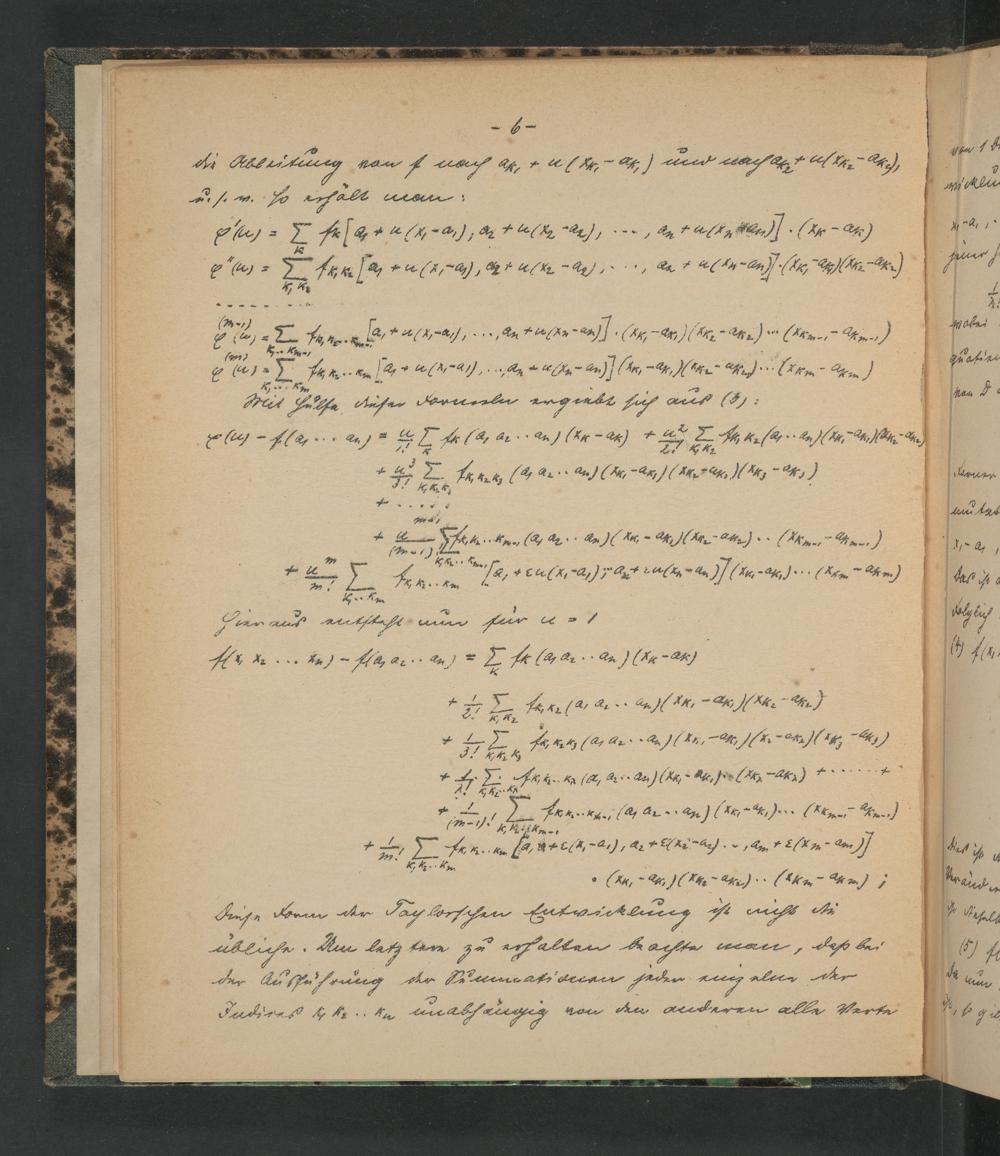 - 6 -
die Ableitung von f nach aκ₁ + u(xκ₁ - aκ₁) und nach aκ₂ + u(xκ₂ - aκ₂),
u. s. w. So erhält man:
φ'(u) = ∑κ fκ[a₁ + u(x₁-a₁), a₂ + u(x₂-a₂), ..., aₙ + u(xₙ-aₙ)] · (xκ - aκ)
φ''(u) = ∑κ₁κ₂ fκ₁κ₂[a₁ + u(x₁-a₁), a₂ + u(x₂-a₂), ..., aₙ + u(xₙ-aₙ)] · (xκ₁-aκ₁)(xκ₂-aκ₂)
. . . . . . . .
φ^(m-1)(u) = ∑κ₁..κm-1 fκ₁κ₂..κm-1[a₁ + u(x₁-a₁), ..., aₙ + u(xₙ-aₙ)] · (xκ₁-aκ₁)(xκ₂-aκ₂) ... (xκm-1 - aκm-1)
φ^(m)(u) = ∑κ₁...κm fκ₁κ₂..κm[a₁ + u(x₁-a₁), ..., aₙ + u(xₙ-aₙ)](xκ₁-aκ₁)(xκ₂-aκ₂)...(xκm - aκm)
Mit Hülfe dieser Formeln ergiebt sich aus (3):
φ(u) - f(a₁ ... aₙ) = u/1! ∑κ fκ(a₁ a₂ .. aₙ)(xκ-aκ) + u²/2! ∑κ₁κ₂ fκ₁κ₂(a₁..aₙ)(xκ₁-aκ₁)(xκ₂-aκ₂)
+ u³/3! ∑κ₁κ₂κ₃ fκ₁κ₂κ₃(a₁ a₂ .. aₙ)(xκ₁-aκ₁)(xκ₂-aκ₂)(xκ₃-aκ₃)
+ . . . . .
+ u^(m-1)/(m-1)! ∑κ₁κ₂..κm-1 fκ₁κ₂..κm-1(a₁ a₂ .. aₙ)(xκ₁-aκ₁)(xκ₂-aκ₂) .. (xκm-1 - aκm-1)
+ u^m/m! ∑κ₁..κm fκ₁κ₂..κm [a₁ + εu(x₁-a₁), .. aₙ + εu(xₙ-aₙ)](xκ₁-aκ₁) ... (xκm - aκm)
Hieraus entsteht nun für u = 1
f(x₁ x₂ ... xₙ) - f(a₁ a₂ .. aₙ) = ∑κ fκ(a₁ a₂ .. aₙ)(xκ-aκ)
+ 1/2! ∑κ₁κ₂ fκ₁κ₂(a₁ a₂ .. aₙ)(xκ₁-aκ₁)(xκ₂-aκ₂)
+ 1/3! ∑κ₁κ₂κ₃ fκ₁κ₂κ₃(a₁ a₂ .. aₙ)(xκ₁-aκ₁)(x₂-aκ₂)(xκ₃-aκ₃)
+ 1/λ! ∑κ₁κ₂..κλ fκ₁κ₂..κλ(a₁ a₂ .. aₙ)(xκ₁-aκ₁) .. (xκλ-aκλ) + ...... +
+ 1/(m-1)! ∑κ₁κ₂..κm-1 fκ₁κ₂..κm-1(a₁ a₂ .. aₙ)(xκ₁-aκ₁) ... (xκm-1 - aκm-1)
+ 1/m! ∑κ₁κ₂..κm fκ₁κ₂..κm [a₁ + ε(x₁-a₁), a₂ + ε(x₂-a₂) .. , am + ε(xm-am)]
· (xκ₁-aκ₁)(xκ₂-aκ₂) .. (xκm - aκm) ;
Diese Form der Taylorschen Entwicklung ist nicht die
übliche. Um letztere zu erhalten beachte man, daß bei
der Ausführung der Summationen jeder einzelne der
Indices κ₁ κ₂ .. κₙ unabhängig von den anderen alle Werte